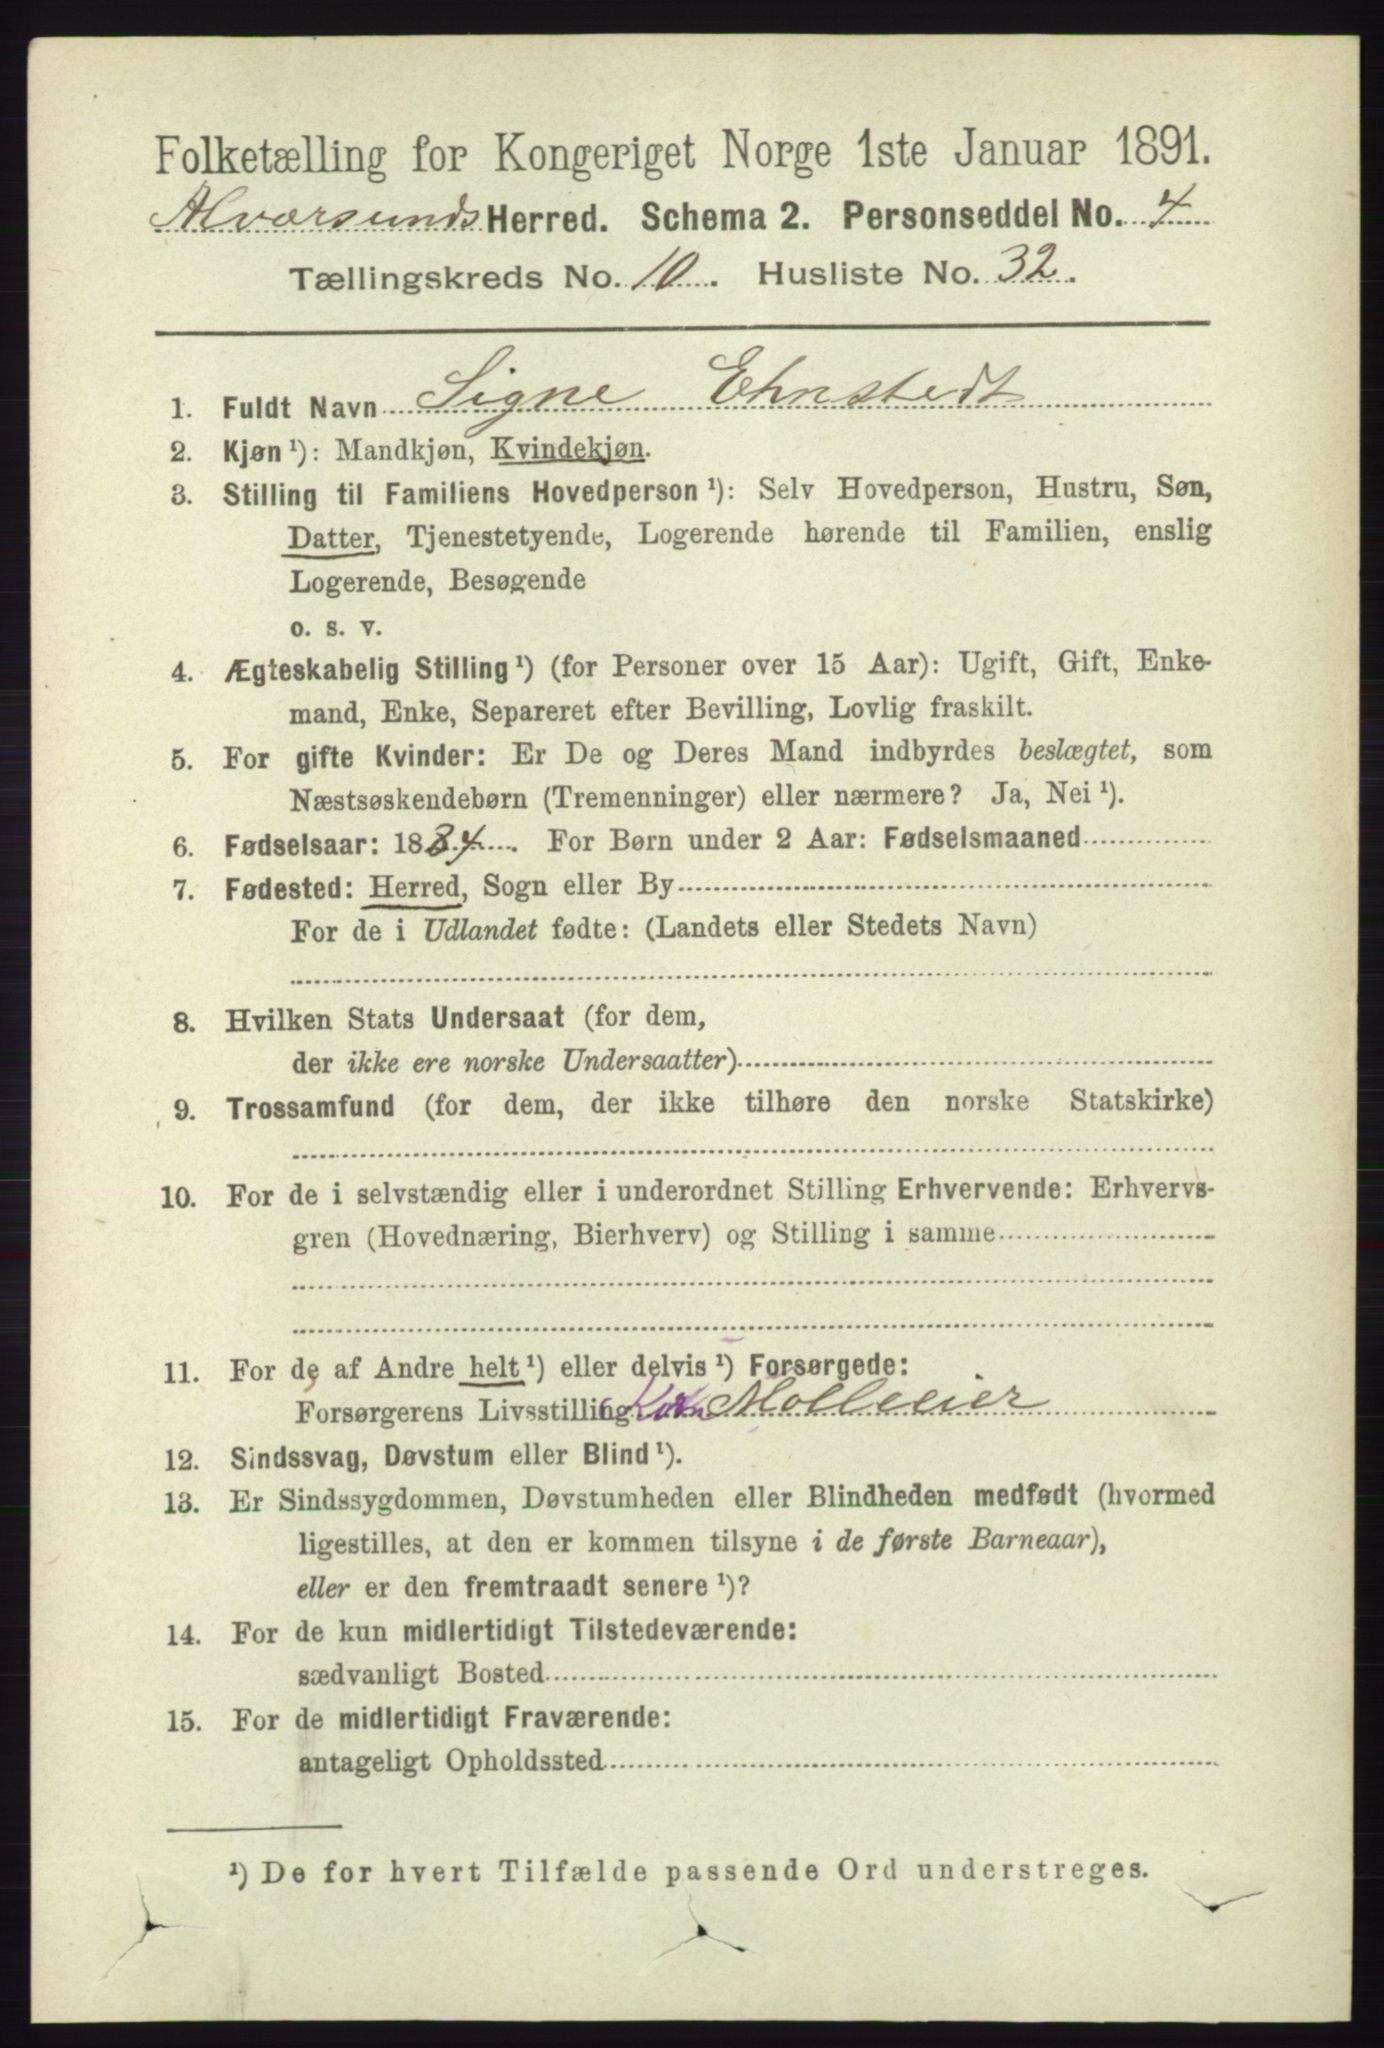 Folketælling for Kongeriget Norge 1ste Januar 1891.
Alversunds Herred. Schema 2. Personseddel No. 4
Tællingskreds No. 10. Husliste No. 32.
1. Fuldt Navn Signe Ehnstedt
2. Kjøn ¹): Mandkjøn, Kvindekjøn.
3. Stilling til Familiens Hovedperson ¹): Selv Hovedperson, Hustru, Søn,
Datter, Tjenestetyende, Logerende hørende til Familien, enslig
Logerende, Besøgende
o. s. v.
4. Ægteskabelig Stilling ¹) (for Personer over 15 Aar): Ugift, Gift, Enke-
mand, Enke, Separeret efter Bevilling, Lovlig fraskilt.
5. For gifte Kvinder: Er De og Deres Mand indbyrdes beslægtet, som
Næstsøskendebørn (Tremenninger) eller nærmere? Ja, Nei ¹).
6. Fødselsaar: 1884. For Børn under 2 Aar: Fødselsmaaned
7. Fødested: Herred, Sogn eller By
For de i Udlandet fødte: (Landets eller Stedets Navn)
8. Hvilken Stats Undersaat (for dem,
der ikke ere norske Undersaatter)
9. Trossamfund (for dem, der ikke tilhøre den norske Statskirke)
10. For de i selvstændig eller i underordnet Stilling Erhvervende: Erhvervs-
gren (Hovednæring, Bierhverv) og Stilling i samme
11. For de af Andre helt ¹) eller delvis ¹) Forsørgede:
Forsørgerens Livsstilling Korn Mølleeier
12. Sindssvag, Døvstum eller Blind ¹).
13. Er Sindssygdommen, Døvstumheden eller Blindheden medfødt (hvormed
ligestilles, at den er kommen tilsyne i de første Barneaar),
eller er den fremtraadt senere ¹)?
14. For de kun midlertidigt Tilstedeværende:
sædvanligt Bosted
15. For de midlertidigt Fraværende:
antageligt Opholdssted
¹) De for hvert Tilfælde passende Ord understreges.